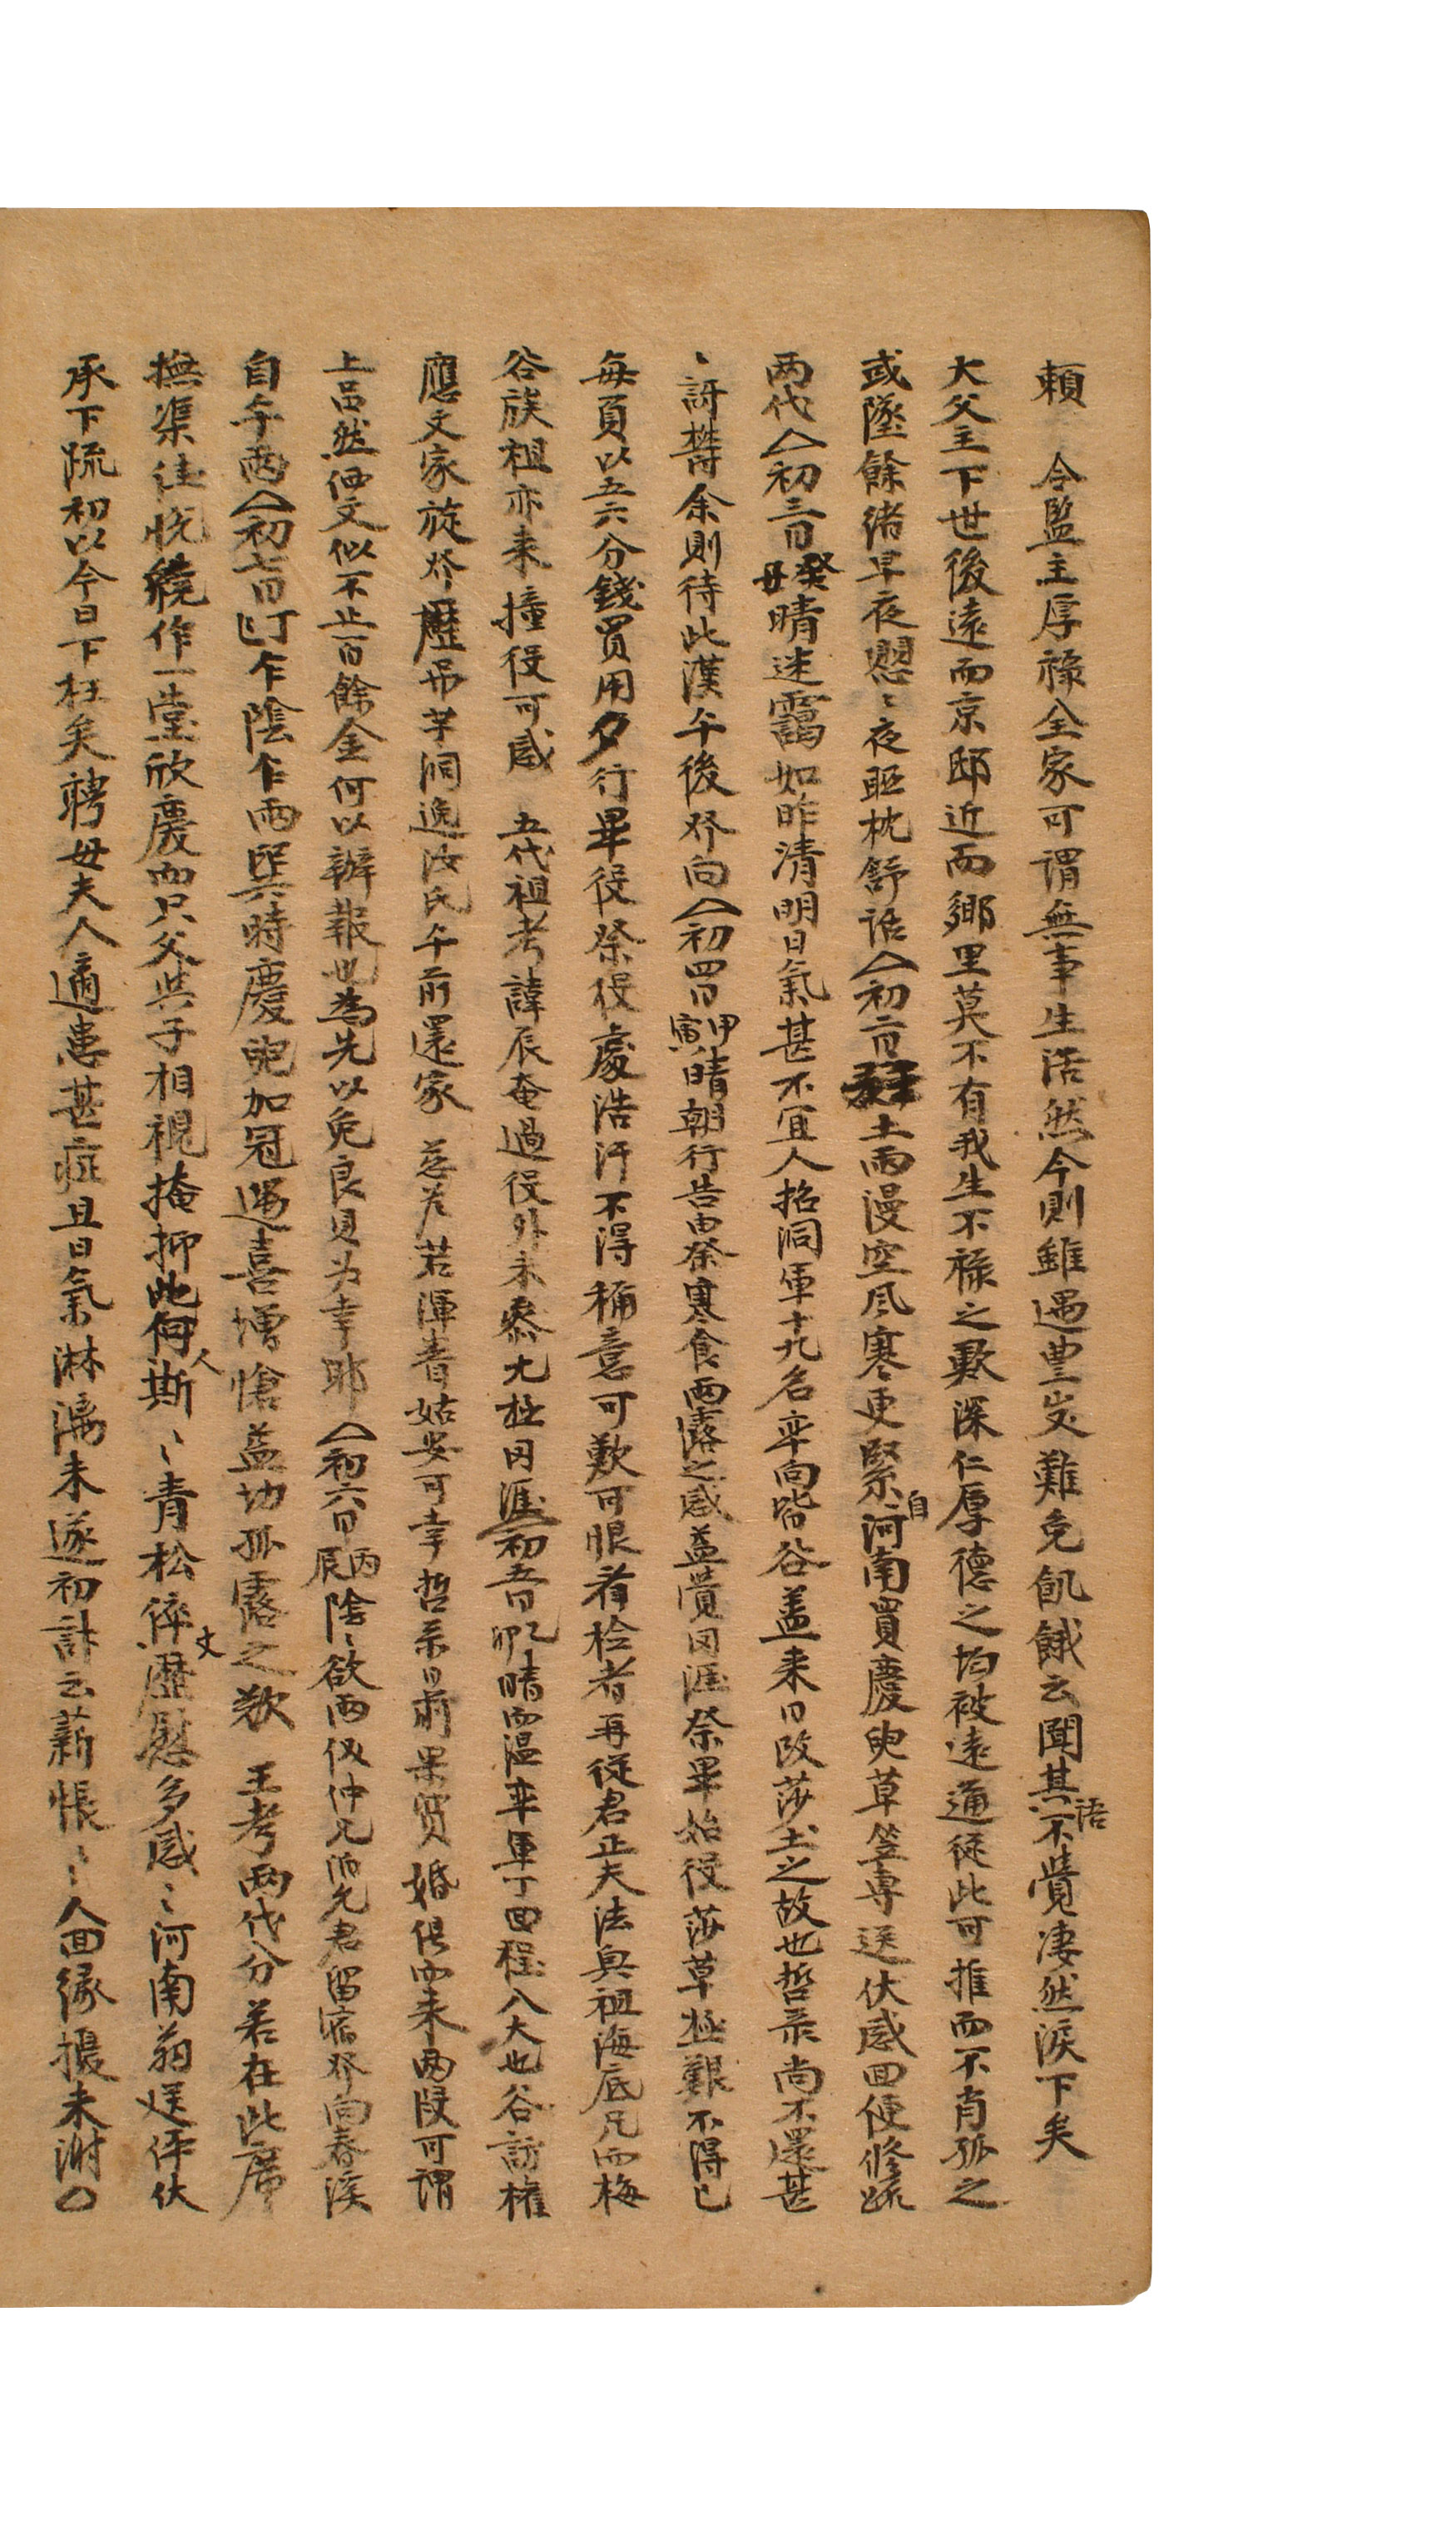 賴　令監主厚祿全家可謂無事生活然今則雖遇豊歲難免飢餓云聞其語不覺凄然淚下矣
大父主下世後遠而京邸近而鄉里莫不有我生不祿之歎深仁厚德之均被遠通従此可推而不肖孤之
或墜餘緖早夜慇〻夜旺枕舒誥 初二日 土雨漫空风寒更緊自河南買慶兒草笠専送伏感回便修疏
兩代 初三日癸丑晴迷靄如昨清明日氣甚不宜人招洞軍十九名率向皆谷盖来日改莎土之故也哲彔尚不還甚
〻訝欝余則待此漢午後发向 初四日甲寅晴朝行告由祭寒食雨露之感益覺罔涯祭畢始役莎草極艱不得已
每負以五六分錢買用夕行畢役祭役處浩汗不得稱意可歎可恨看检者再從君正夫法興祖海底兄而梅
谷族祖亦来撞役可感　五代祖考諱辰奄過役外未叅尤極罔涯 初五日乙卯晴而温率軍丁回程八大也谷訪權
應文家旋发歷弔芋洞逸汝氏午前還家　慈候若渾眷姑安可幸哲彔日前果貿婚俱而来兩段可謂
上品然価文似不止百餘金何以辦報也為先以免良貝为幸耶 初六日丙辰陰〻欲雨似仲兄源允君留宿发向春溪
自午雨 初七日丁巳乍陰乍雨巽時慶兒加冠遇喜增愴益切孤露之歎　王考兩代分若在此席
撫渠佳悅繞作一堂欣慶而只父與子相視掩抑此何人斯〻青松倅丈歷慰多感〻河南翁送伻伏
承下疏初以今日下枉矣聘母夫人適患甚症且日氣淋漓未遂初計云薪悵〻人回緣撓未謝〇